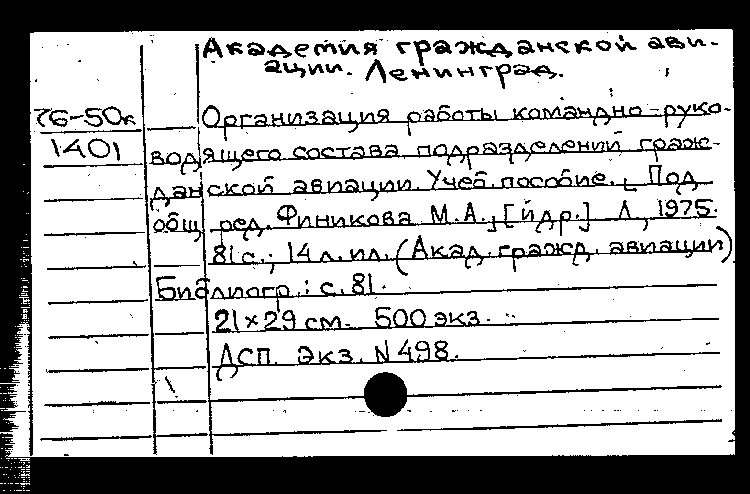 Академия гражданской ави-
ации. Ленинград.
76-50к Организация работы командно-руко-
1401 водящего состава подразделений граж-
данской авиации. Учеб. пособие. Под
общ ред. Финикова М.А., [и др.] Л, 1975.
81с.; 14 л. ил. (Акад. гражд. авиации)
Библиогр.: с. 81.
21×29 см. 500 экз.
ДСП. Экз. N 498.